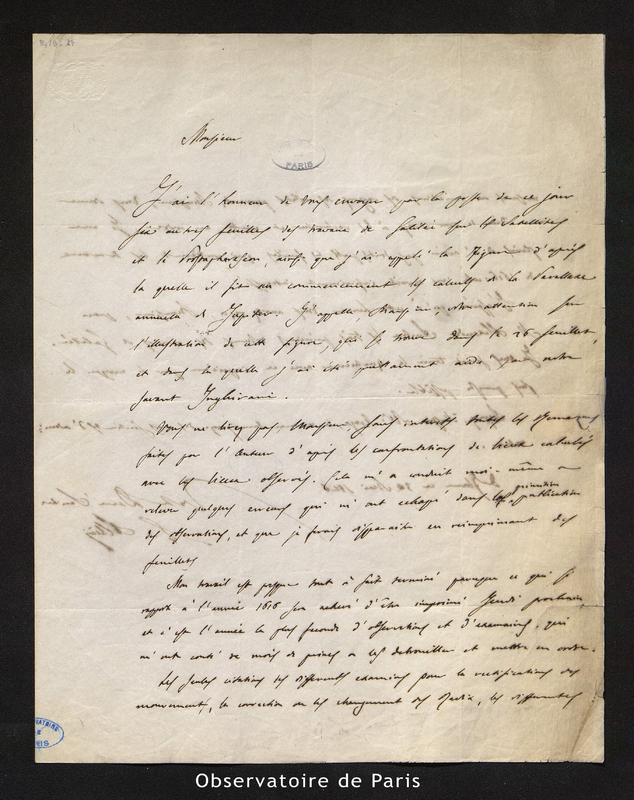 Monsieur
PARIS
J'ai l'honneur de vous envoyer par la poste de ce jour
six autres feuilles des travaux de Galilée sur les Satellites
et la Prosthapherésion, ainsi que j'ai appelé la figure d'après
la quelle il fit au commencement les calculs de la Parallaxe
annuelle de Jupiter. J'appelle Monsieur, votre attention sur
l'illustration de cette figure qui se trouve dans le 26 feuillet,
et dans la quelle j'ai été puissamment aidé par notre
savant Inghirami.
Vous ne lirez pas Monsieur sans intérêt toutes les Remarques
faites par l'Auteur d'après les confrontations de lieux calculés
avec les lieux observés. Cela m'a conduit moi-même à
relever quelques erreurs qui m'ont echapé dans la première publication
des observations, et que je ferais disparaitre en reimprimant des
feuillets
Mon travail est presque tout à fait terminé parceque ce qui se
rapporte à l'année 1616 sera achevé d'être imprimé Jeudi prochain,
et c'est l'année la plus feconde d'observations et d'examens, qui
m'ont couté de mois de peines à les debrouiller et mettre en ordre.
Les seules citations des differents examens pour la rectification des
mouvements, la correction ou les changement des Radix, les differentes
Observatoire de Paris